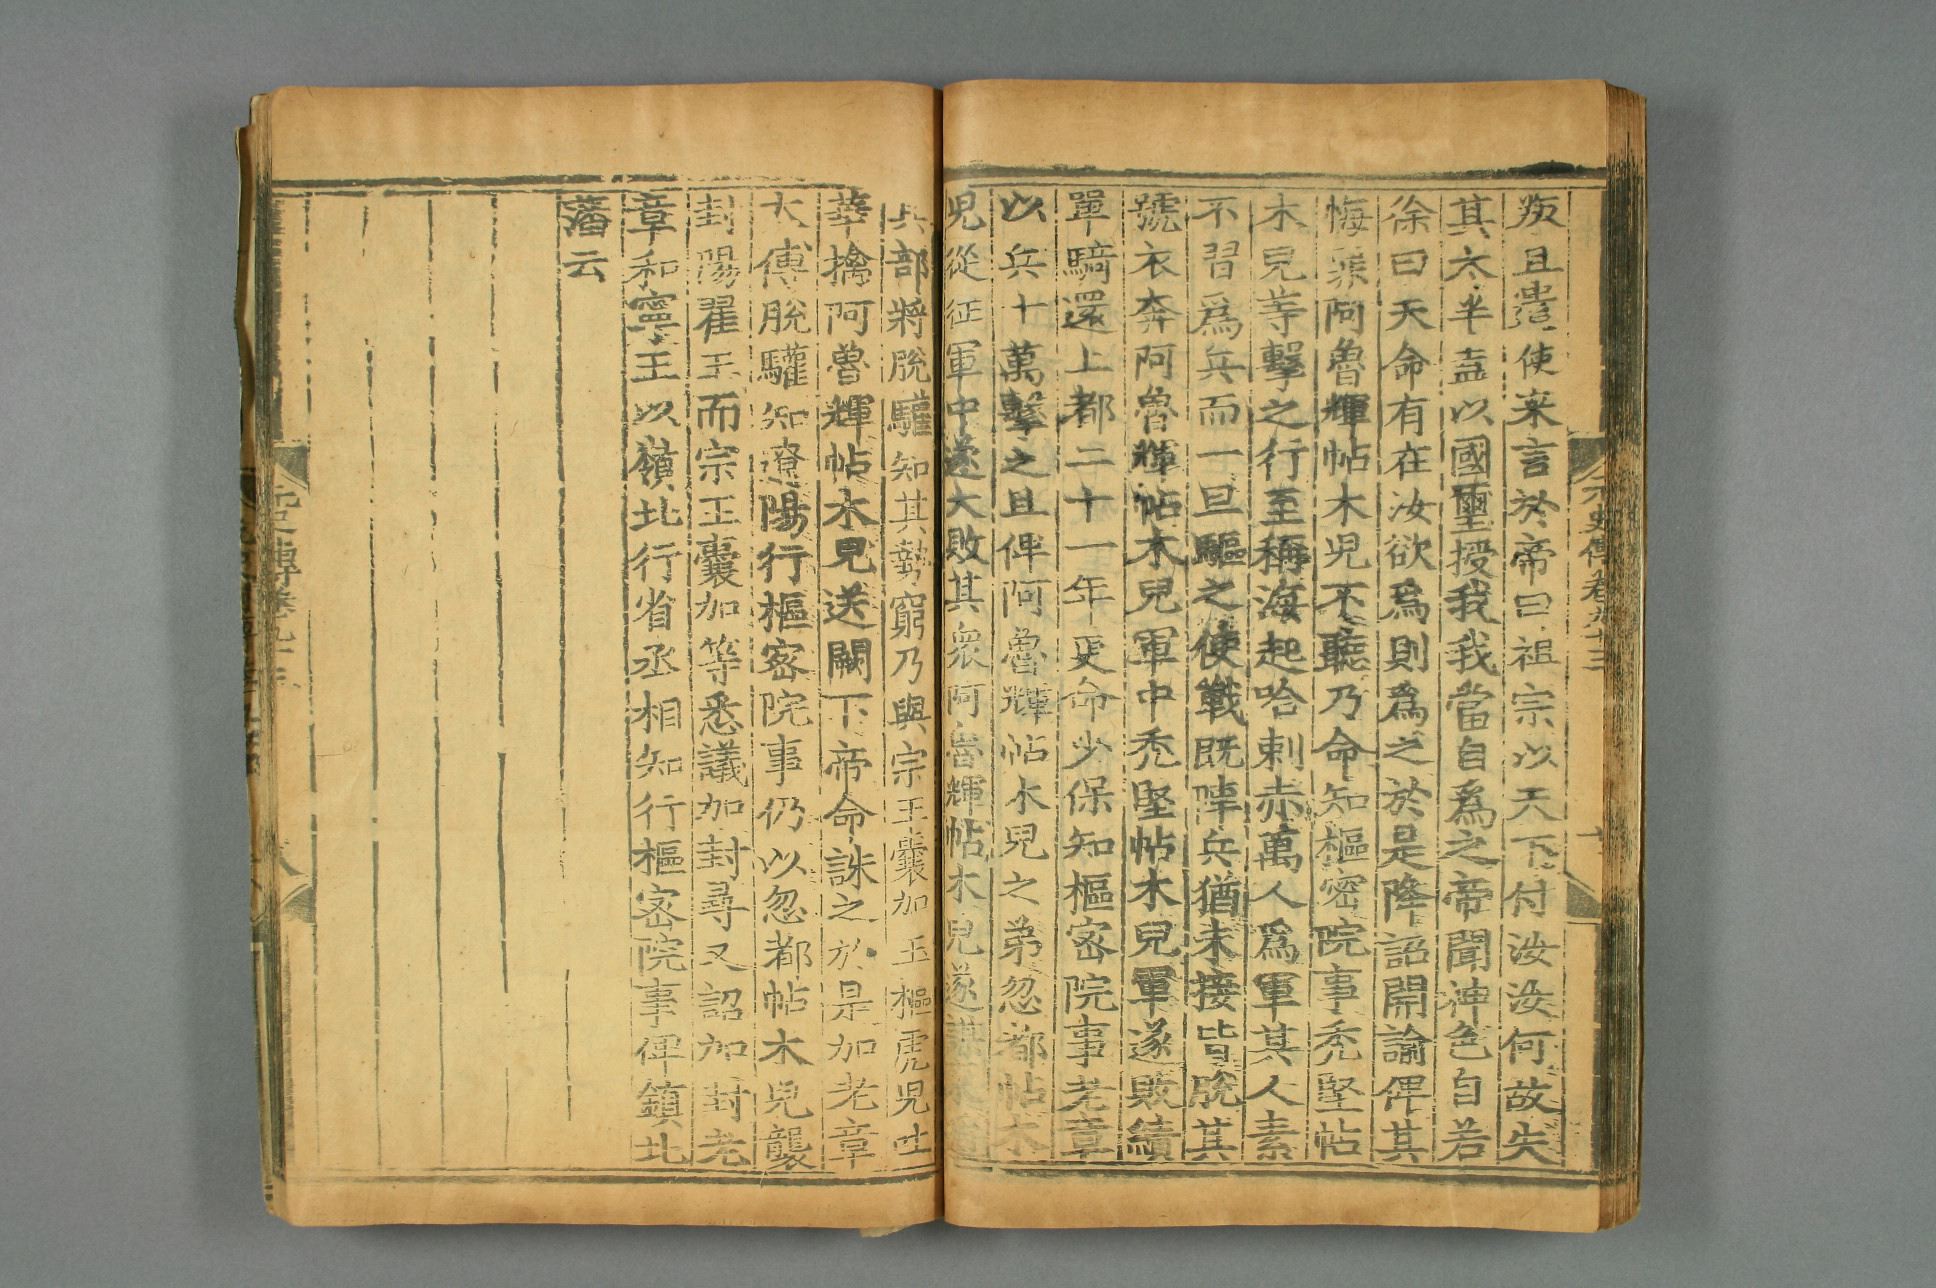 叛且遣使來言於帝曰祖宗以天下付汝汝何故失
其太半盍以國璽授我我當自爲之帝聞神色自若
徐曰天命有在汝欲爲則爲之於是降詔開諭俾其
悔罪阿魯輝帖木児不聽乃命知樞密院事禿堅帖
木兒等擊之行至稱海起哈剌赤萬人爲軍其人素
不習爲兵而一旦驅之使戰既陣兵猶未接皆脫其
號衣奔阿魯輝帖木兒軍中禿堅帖木兒軍遂敗績
單騎還上都二十一年更命少保知樞宻院事老章
以兵十萬擊之且俾阿魯輝帖木兒之弟忽都帖木
児從征軍中遂大敗其衆阿魯輝帖木児遂謀東遁
其部將脫驩知其勢窮乃與宗王囊加玉樞虎児吐
華擒阿魯輝帖木兒送闕下帝命誅之於是加老章
太傅脫驩知遼陽行樞宻院事仍以忽都帖木兒襲
封陽翟王而宗王囊加等悉議加封尋又詔加封老
章和寧王以嶺北行省丞相知行樞宻院事俾鎮北
藩云
元史傳卷九十三
元史傳卷九十三
八